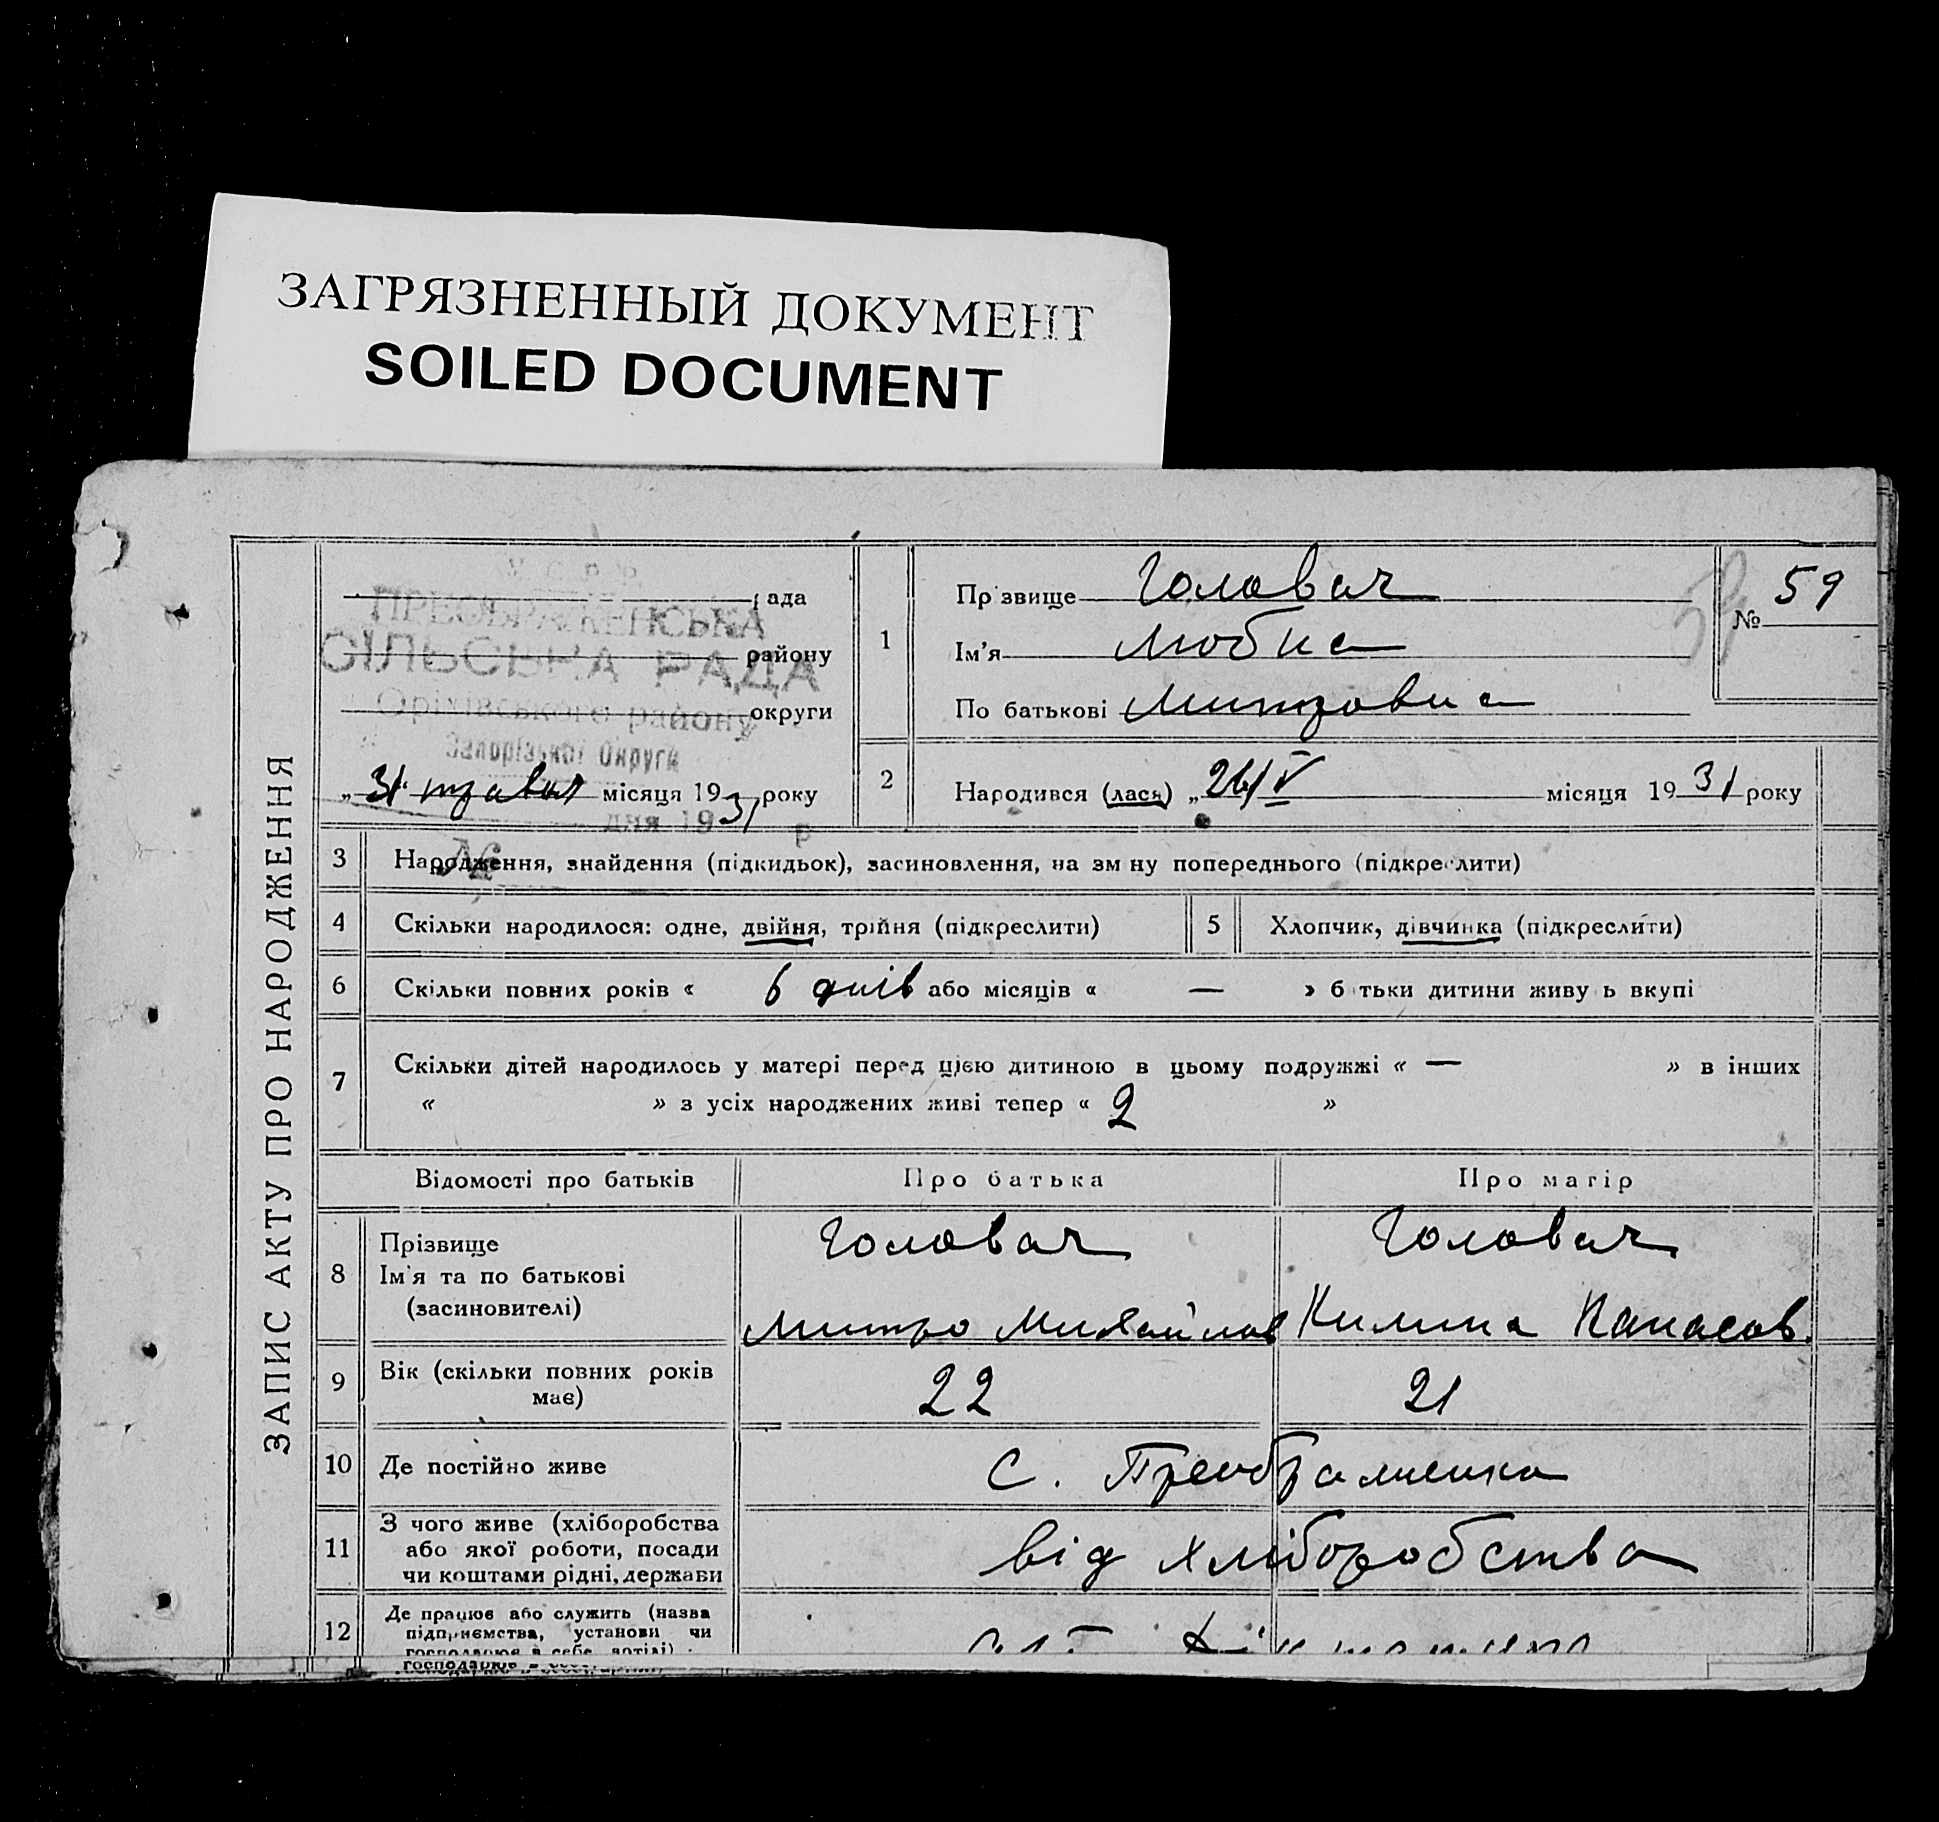 ЗАГРЯЗНЕННЫЙ ДОКУМЕНТ
SOILED DOCUMENT
ЗАПИС АКТУ ПРО НАРОДЖЕННЯ
У С Р Р
ПРЕОБРАЖЕНСЬКА
СІЛЬСЬКА РАДА
Оріхівського району
Запорізької Округи
рада
району
округи
„31" травня місяця 1931 року
дня 19 р
№
1
Прізвище Головач
Ім'я Любка
По батькові Митровна
№ 59
59
2
Народився (лась) „26/V місяця 1931 року
3 Народження, знайдення (підкидьок), засиновлення, на зміну попереднього (підкреслити)
4 Скільки народилося: одне, двійня, трійня (підкреслити)
5 Хлопчик, дівчинка (підкреслити)
6 Скільки повних років « 6 днів або місяців « — » батьки дитини живуть вкупі
7 Скільки дітей народилось у матері перед цією дитиною в цьому подружжі « — » в інших
« » з усіх народжених живі тепер « 2 »
Відомості про батьків Про батька Про матір
8 Прізвище
Ім'я та по батькові
(засиновителі)
Головач
Митро Михайлов
Головач
Килина Панасов.
9 Вік (скільки повних років
має)
22 21
10 Де постійно живе с. Преображенка
11 З чого живе (хліборобства
або якої роботи, посади
чи коштами рідні, держави
від хліборобства
12 Де працює або служить (назва
підприємства, установи чи
господарює в себе, артілі)
господарює в